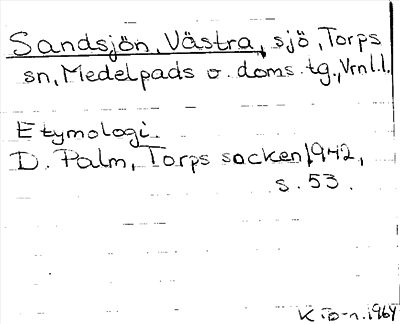 Sandsjön, Västra, sjö, Torps
sn, Medelpads v. doms. tg., Vrnl.l.
Etymologi.
D. Palm, Torps socken 1942,
s. 53.
K 1964